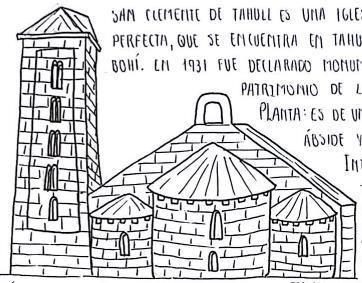 SAN CLEMENTE DE TAHULL ES UNA
PERFECTA, QUE SE ENCUENTRA EN
BOHÍ. EN 1931 FUE DECLARADO
PATRIMONIO DE
PLANTA: ES DE
ÁBSIDE